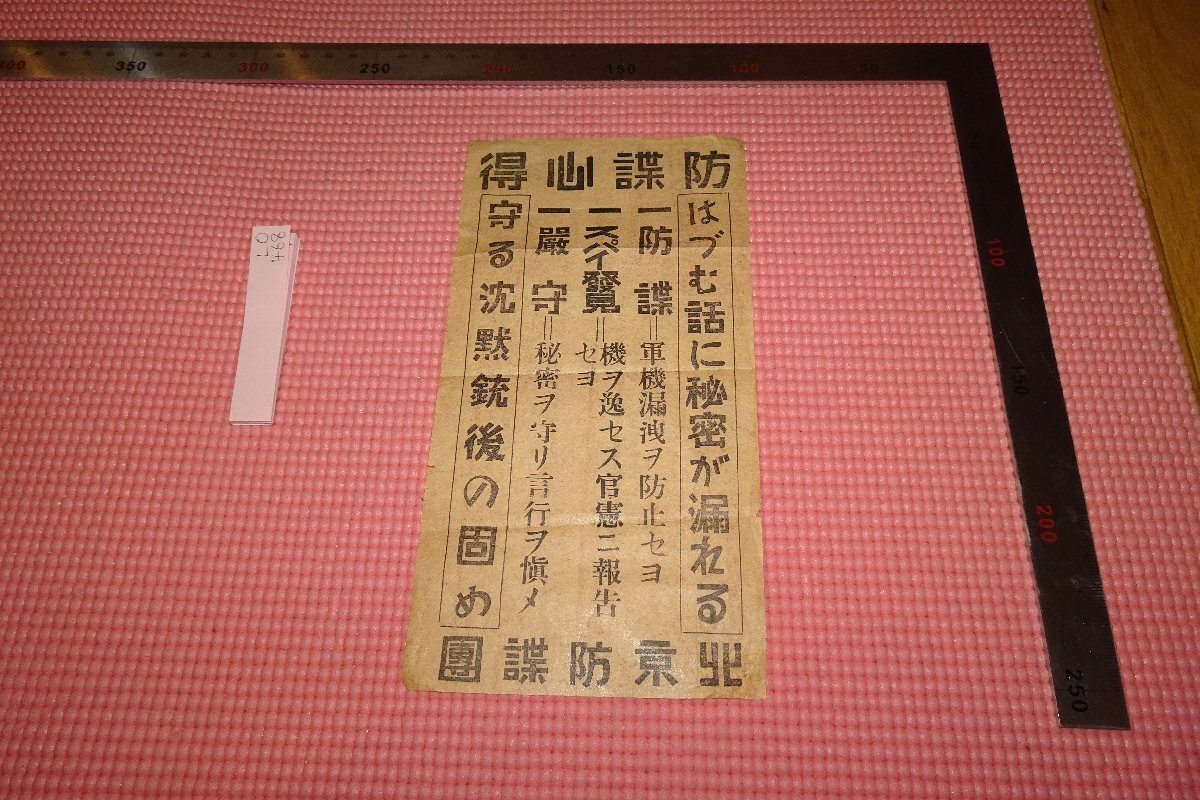 防諜心得
はづむ話に秘密が漏れる
一防諜=軍機漏洩ヲ防止セヨ
一スパイ發見=機ヲ逸セス官憲ニ報告
セヨ
一嚴守=秘密ヲ守リ言行ヲ愼メ
守る沈黙銃後の固め
北京防諜團
350 300 250 200 150 100 50
50 100 150 200 250